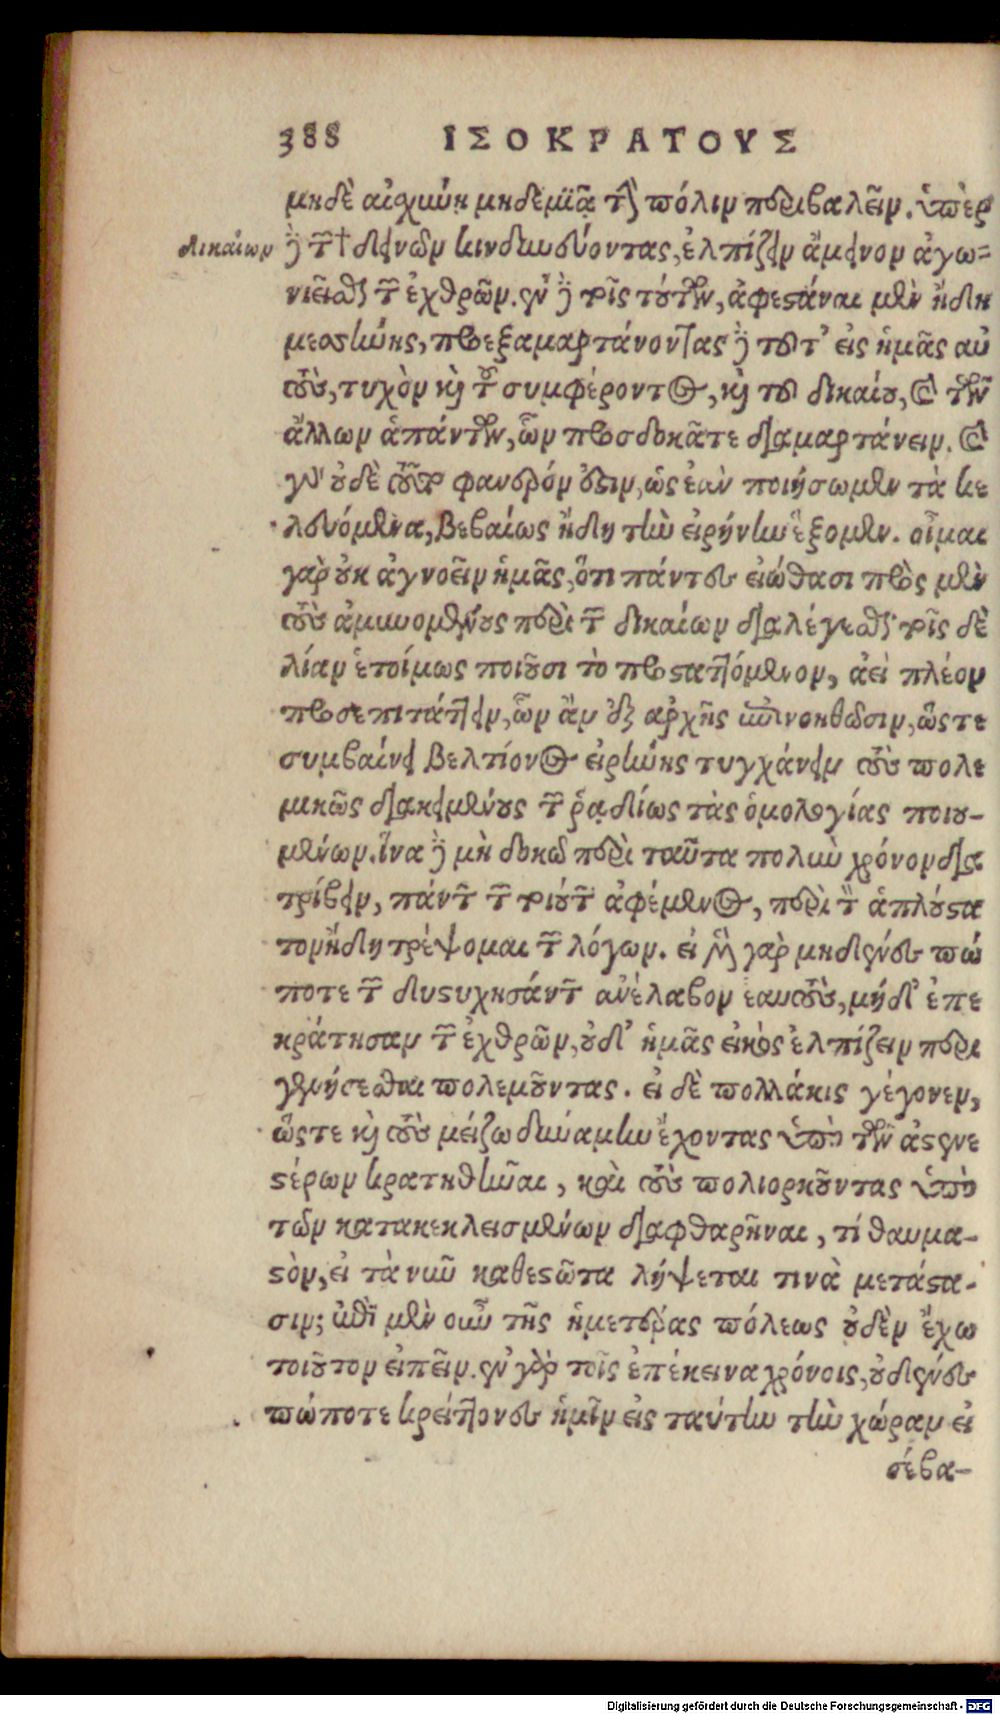 388 ΙΣΟΚΡΑΤΟΥΣ
μηδὲ αἰχύνῃ μηδεμιᾷ τὴν πόλιν περιβαλεῖν. ὑπὲρ
δικαίων
δὲ τῶν † δεινῶν κινδυνεύοντας, ἐλπίζειν ἄμεινον ἀγω-
νιεῖσθαι τῶν ἐχθρῶν. ἐν δὲ τοῖς τούτων, ἀφεστάναι μὲν ἤδη
μεσσήνης, προεξαμαρτάνοντας δὲ τοῦτ' εἰς ἡμᾶς αὐ
τοὺς, τυχὸν καὶ τοῦ συμφέροντος, καὶ τοῦ δικαίου, καὶ τῶν
ἄλλων ἁπάντων, ὧν προσδοκᾶτε διαμαρτάνειν. καὶ
γὰρ οὐδὲ τοῦτο φανερόν ἐστιν, ὡς ἐὰν ποιήσωμεν τὰ κε
λευόμενα, βεβαίως ἤδη τὴν εἰρήνην ἕξομεν. οἶμαι
γὰρ οὐκ ἀγνοεῖν ἡμᾶς, ὅτι πάντες εἰώθασι πρὸς μὲν
τοὺς ἀμυνομένους περὶ τῶν δικαίων διαλέγεσθαι τοῖς δὲ
λίαν ἑτοίμως ποιοῦσι τὸ προσταττόμενον, ἀεὶ πλέον
προσεπιτάττειν, ὧν ἂν ἐξ ἀρχῆς ἐπινοηθῶσιν, ὥστε
συμβαίνει βελτίονος εἰρήνης τυγχάνειν τοὺς πολε
μικῶς διακειμένους τῶν ῥᾳδίως τὰς ὁμολογίας ποιου-
μένων. ἵνα δὲ μὴ δοκῶ περὶ ταῦτα πολὺν χρόνον δια
τρίβειν, πάντων τῶν τοιούτων ἀφέμενος, περὶ τὸν ἁπλούστα
τον ἤδη τρέψομαι τῶν λόγων. εἰ μὲν γὰρ μηδένες πώ
ποτε τῶν δυστυχησάντων ἀνέλαβον ἑαυτοὺς, μήδ' ἐπε
κράτησαν τῶν ἐχθρῶν, οὐδ' ἡμᾶς εἰκὸς ἐλπίζειν περι
γενήσεσθαι πολεμοῦντας. εἰ δὲ πολλάκις γέγονεν,
ὥστε καὶ τοὺς μείζω δύναμιν ἔχοντας ὑπὸ τῶν ἀσθενε
στέρων κρατηθῆναι, καὶ τοὺς πολιορκοῦντας ὑπὸ
τῶν κατακεκλεισμένων διαφθαρῆναι, τί θαυμα-
στὸν, εἰ τὰ νῦν καθεστῶτα λήψεται τινὰ μετάστα-
σιν; ἐπὶ μὲν οὖν τῆς ἡμετέρας πόλεως οὐδὲν ἔχω
τοιοῦτον εἰπεῖν. ἐν γὰρ τοῖς ἐπέκεινα χρόνοις, οὐδένες
πώποτε κρείττονες ἡμῖν εἰς ταύτην τὴν χώραν εἰ
σέβα-
Digitalisierung gefördert durch die Deutsche Forschungsgemeinschaft - DFG